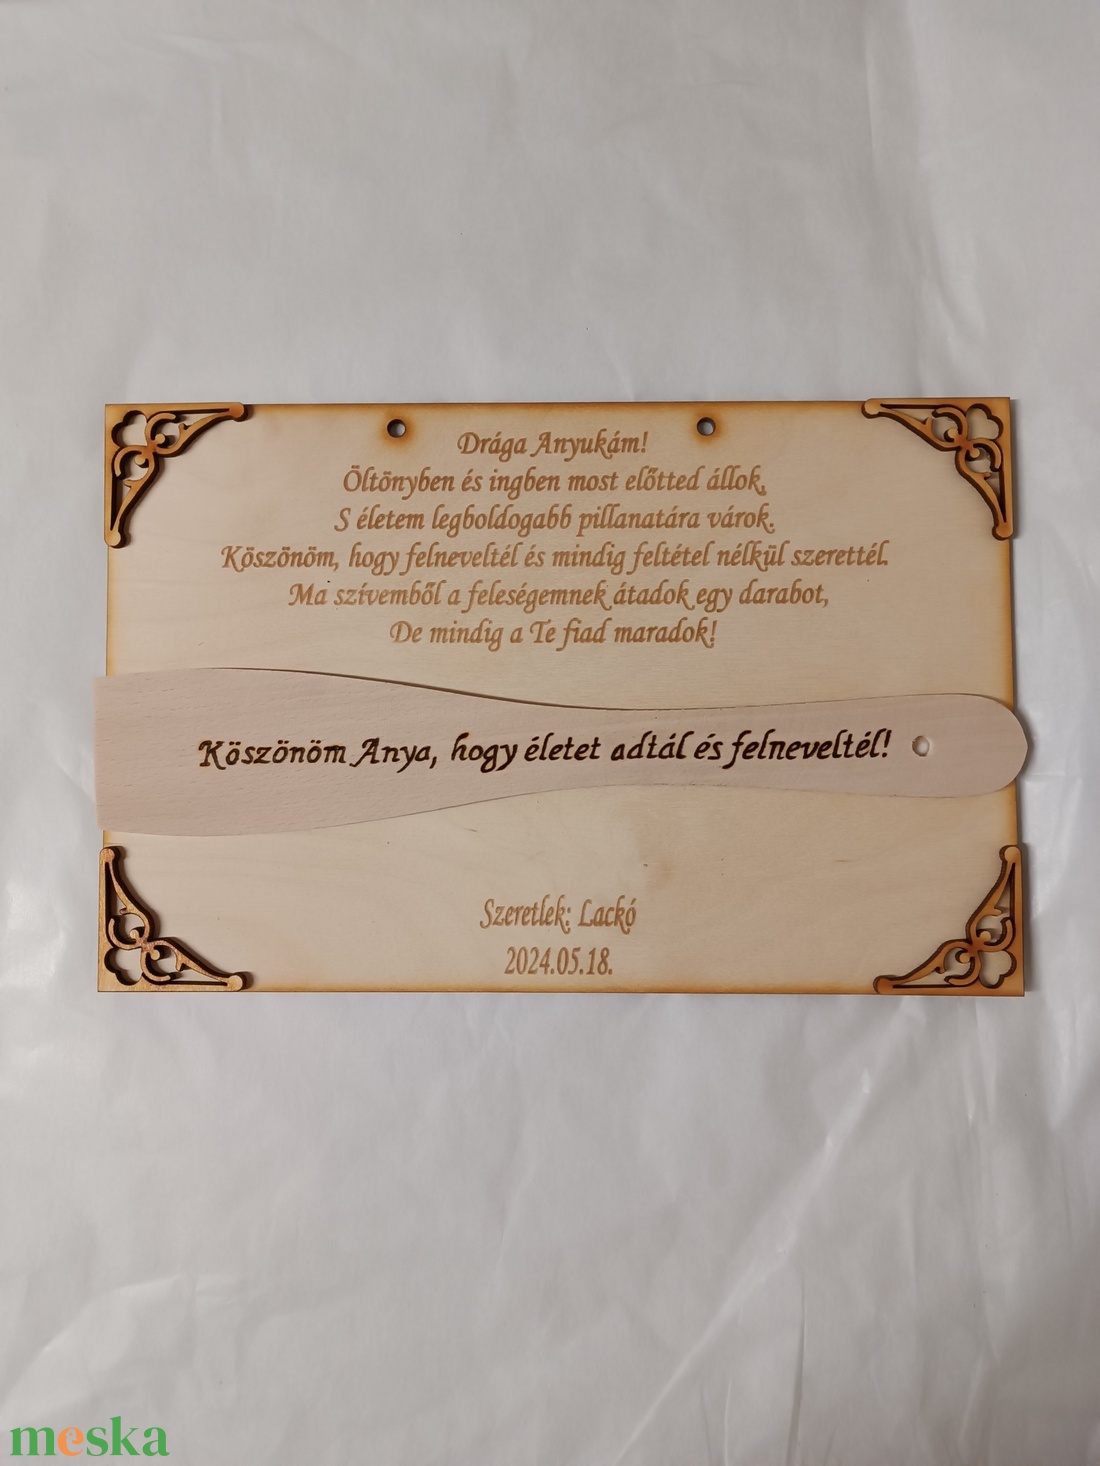 Drága Anyukám!
Öltönyben és ingben most előtted állok,
S életem legboldogabb pillanatára várok.
Köszönöm, hogy felneveltél és mindig feltétel nélkül szerettél.
Ma szívemből a feleségemnek átadok egy darabot,
De mindig a Te fiad maradok!
Köszönöm Anya, hogy életet adtál és felneveltél!
Szeretlek: Lackó
2024.05.18.
meska